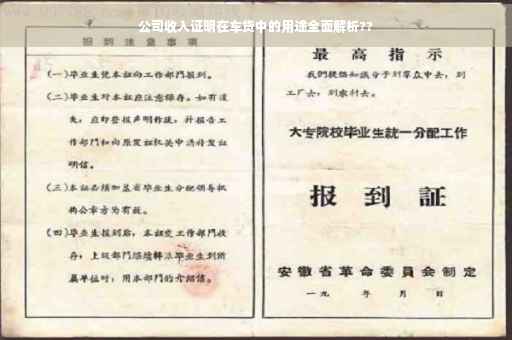 公司收入证明在车贷中的用途全面解析??
报到注意事项
(一)毕业生凭本证向工作部门报到。
(二)毕业生对本证应注意保存。如有遗
失,应即登报声明作废,并报告工
作部门和向原发证机关申请补发证
明信。
(三)本证必须加盖省毕业生分配领导机
构公章方为有效。
(四)毕业生报到后,本证交工作部门收
存;上级部门继续转派毕业生到所
属单位时,用本部门的介绍信。
最高指示
我们提倡知识分子到群众中去,到
工厂去,到农村去。
大专院校毕业生统一分配工作
报到証
安徽省革命委員会制定
一九 年 月 日